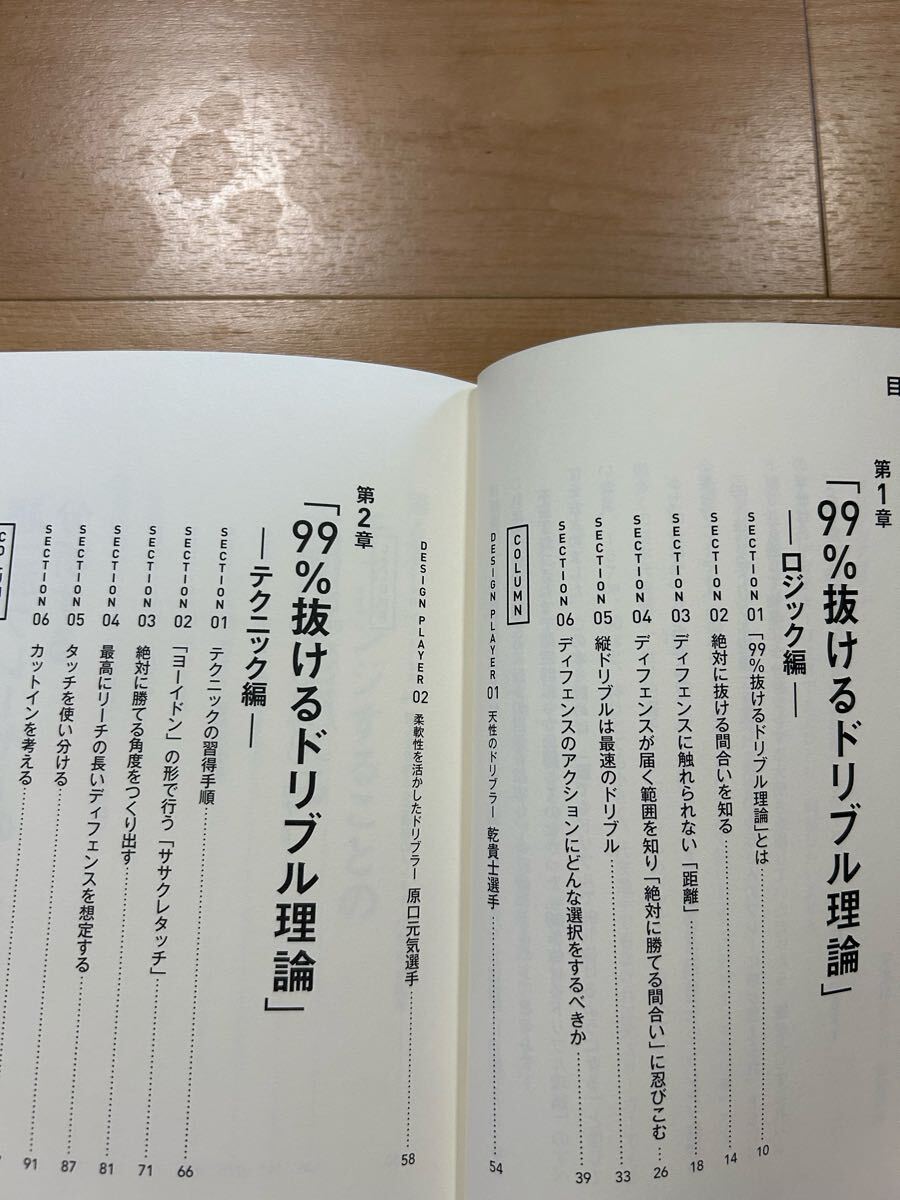 目
第1章
「99％抜けるドリブル理論」
―ロジック編―
SECTION 01 「99％抜けるドリブル理論」とは 10
SECTION 02 絶対に抜ける間合いを知る 14
SECTION 03 ディフェンスに触れられない「距離」 18
SECTION 04 ディフェンスが届く範囲を知り「絶対に勝てる間合い」に忍びこむ 26
SECTION 05 縦ドリブルは最速のドリブル 33
SECTION 06 ディフェンスのアクションにどんな選択をするべきか 39
COLUMN
DESIGN PLAYER 01 天性のドリブラー 乾貴士選手 54
DESIGN PLAYER 02 柔軟性を活かしたドリブラー 原口元気選手 58
第2章
「99％抜けるドリブル理論」
―テクニック編―
SECTION 01 テクニックの習得手順 66
SECTION 02 「ヨーイドン」の形で行う「ササクレタッチ」 71
SECTION 03 絶対に勝てる角度をつくり出す
SECTION 04 最高にリーチの長いディフェンスを想定する 81
SECTION 05 タッチを使い分ける 87
SECTION 06 カットインを考える 91
COLUMN